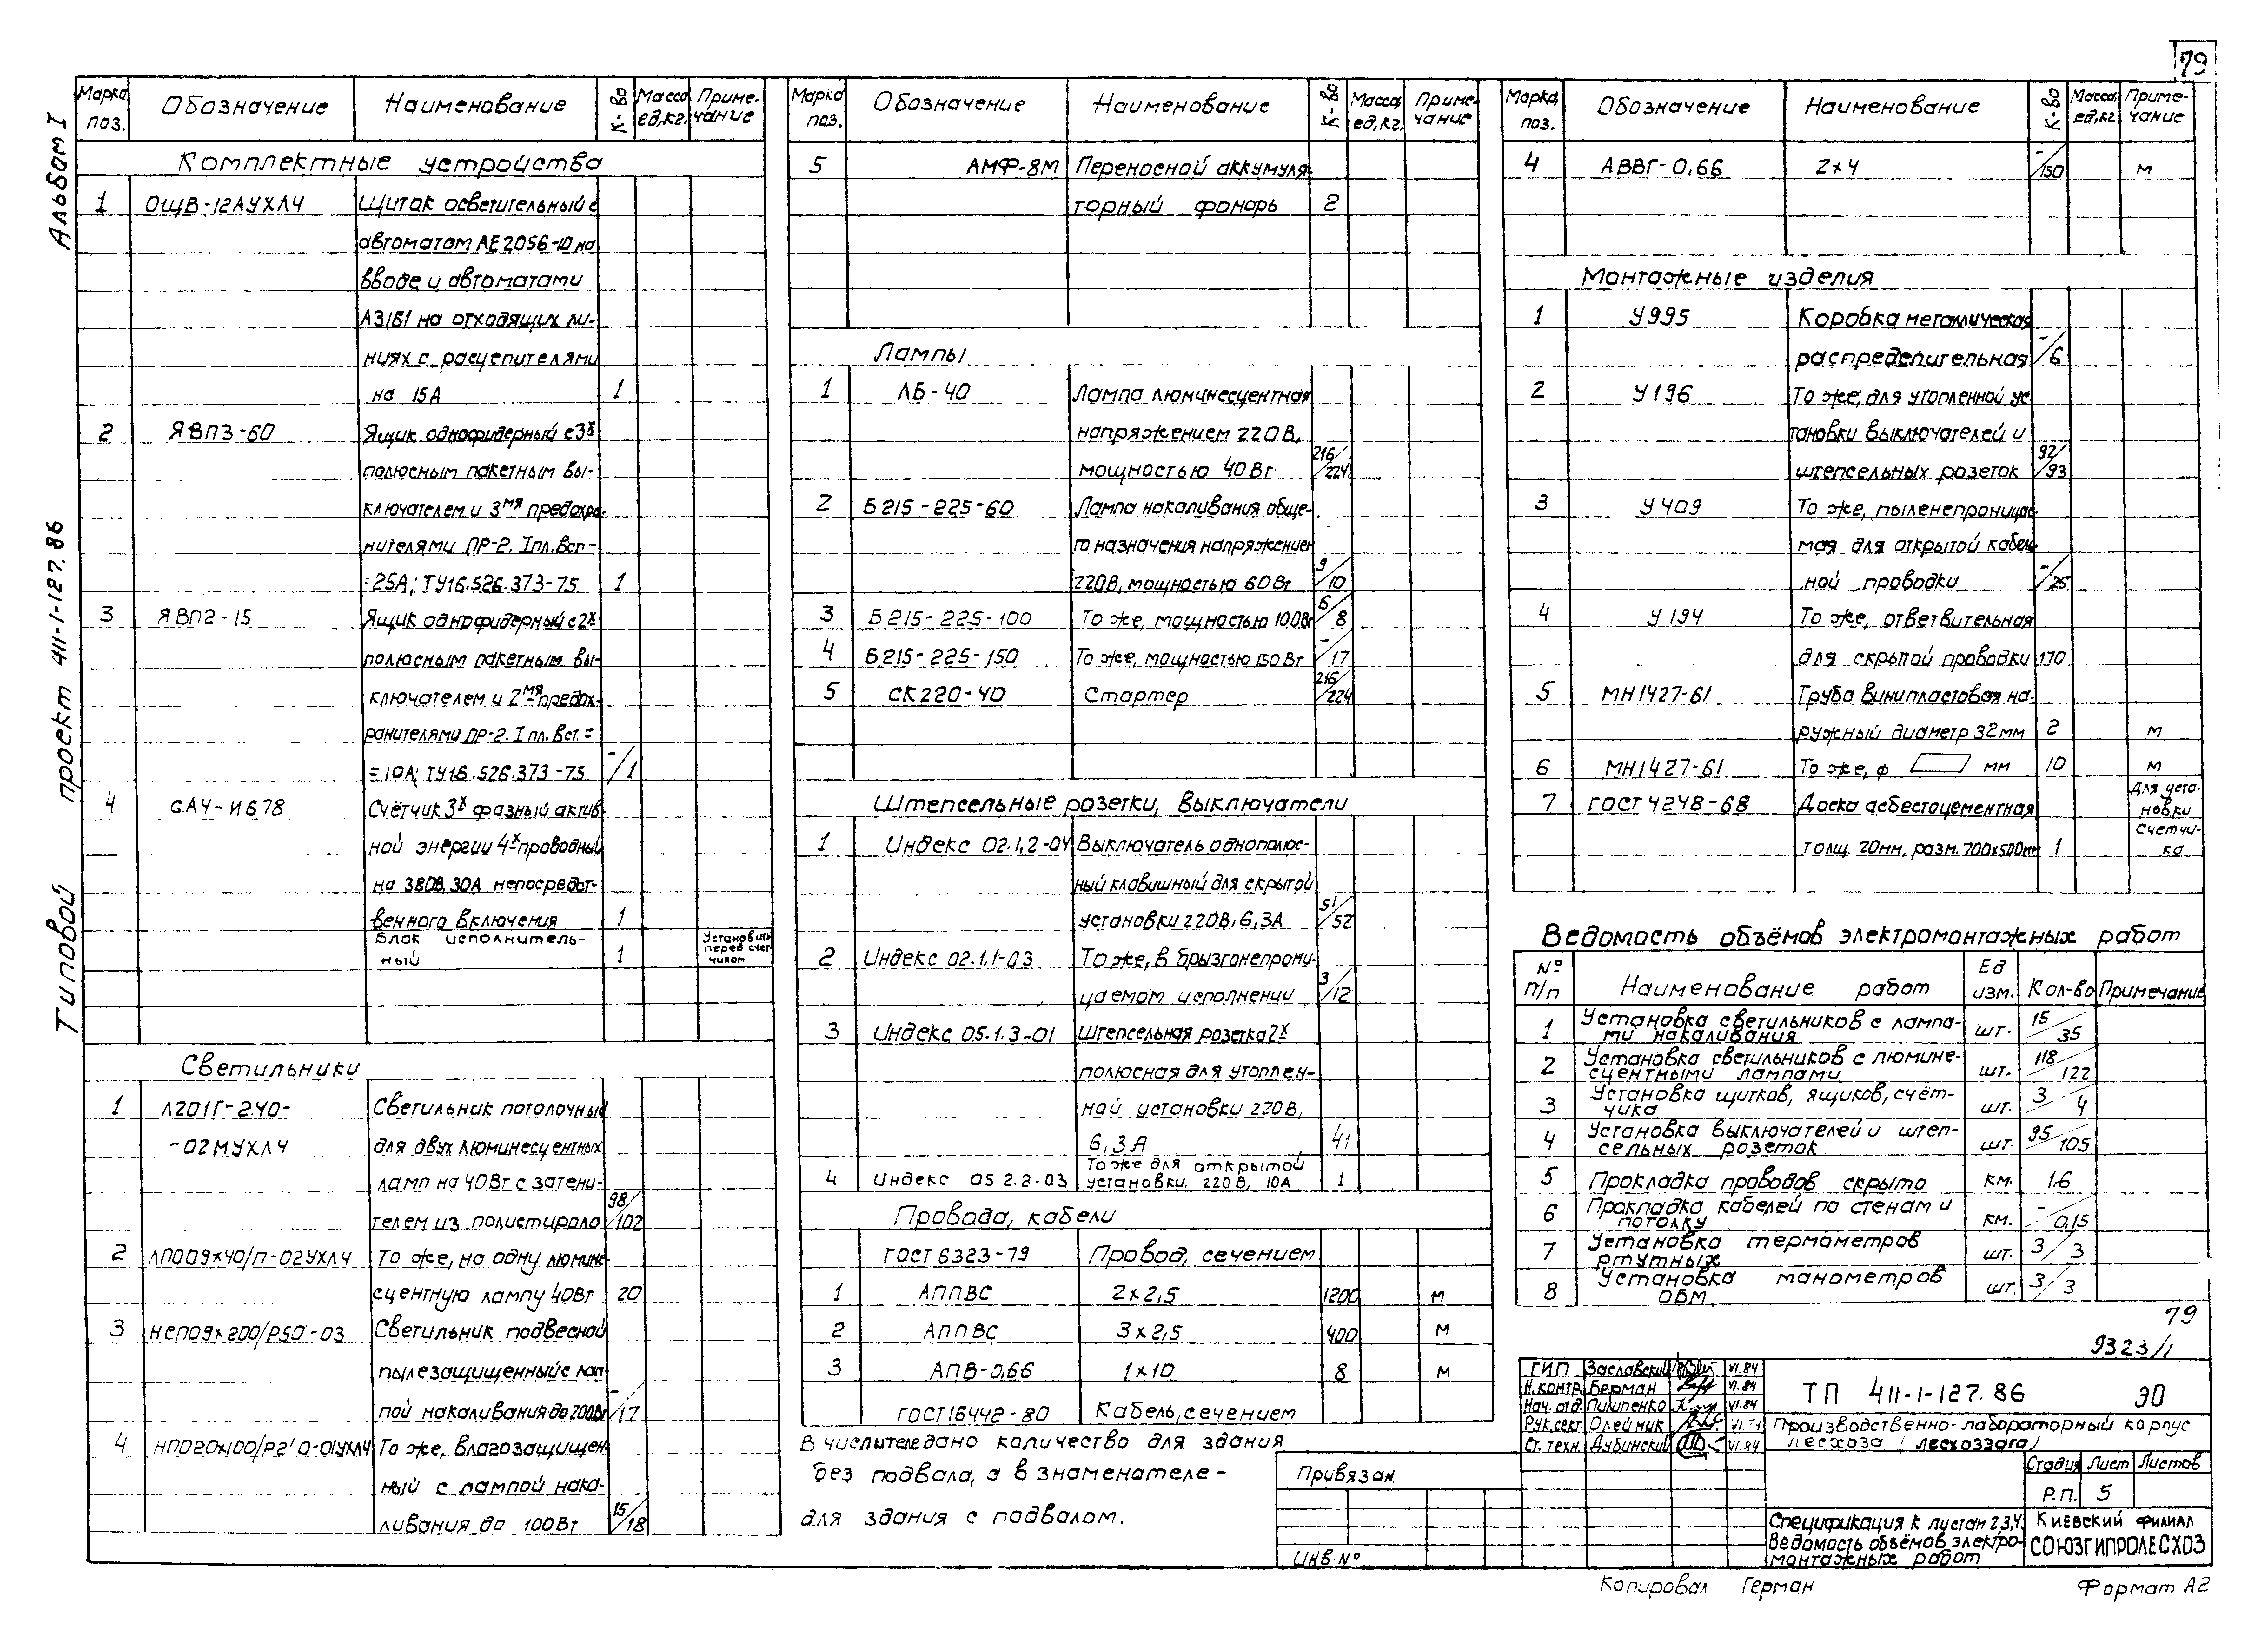 79
Альбом I
Типовой проект 411-1-127.86
Марка поз. Обозначение Наименование К-во Масса ед,кг. Примечание
Комплектные устройства
1 ОЩВ-12АУХЛ4 Щиток осветительный с
автоматом АЕ2056-10 на
вводе и автоматами
А3161 на отходящих ли-
ниях с расцепителями
на 15А 1
2 ЯВПЗ-60 Ящик однофидерный с 3х
полюсным пакетным вы-
ключателем и 3мя предохра-
нителями ПР-2. Iпл.Вст-
=25А; ТУ16.526.373-75 1
3 ЯВП2-15 Ящик однофидерный с 2х
полюсным пакетным вы-
ключателем и 2мя предох-
ранителями ПР-2. I пл. Вст. =
=10А; ТУ16.526.373-75 -/1
4 САЧ-И678 Счётчик 3х фазный актив-
ной энергии 4х проводный
на 380В, 30А непосредст-
венного включения 1
Блок исполнитель-
ный 1 Установить перед счет-чиком
Светильники
1 Л201Г-240- Светильник потолочный
-02МУХЛ4 для двух люминесцентных
ламп на 40Вт с затени-
телем из полистирола 98/102
2 ЛП009х40/П-02УХЛ4 То же, на одну люмине-
сцентную лампу 40Вт 20
3 НСП09х200/Р50-03 Светильник подвесной
пылезащищенный с лам-
пой накаливания до 200Вт -/17
4 НП020х100/Р2'0-01УХЛ4 То же, влагозащищен-
ный с лампой нака-
ливания до 100Вт 15/18
Марка поз. Обозначение Наименование К-во Масса ед,кг. Примечание
5 АМФ-8М Переносной аккумуля-
торный фонарь 2
Лампы
1 ЛБ-40 Лампа люминесцентная
напряжением 220В,
мощностью 40Вт. 216/224
2 Б215-225-60 Лампа накаливания обще-
го назначения напряжением
220В, мощностью 60Вт 9/10
3 Б215-225-100 То же, мощностью 100Вт 6/8
4 Б215-225-150 То же, мощностью 150Вт -/17
5 СК220-40 Стартер 216/224
Штепсельные розетки, выключатели
1 Индекс 02.1,2-04 Выключатель однополюс-
ный клавишный для скрытой
установки 220В, 6,3А 51/52
2 Индекс 02.1.1-03 То же, в брызгонепрони-
цаемом исполнении 3/12
3 Индекс 05.1.3-01 Штепсельная розетка 2х
полюсная для утоплен-
ной установки 220В,
6,3А 41
4 Индекс 05 2.2-03 То же для открытой
установки, 220В, 10А 1
Провода, кабели
ГОСТ 6323-79 Провод, сечением
1 АППВС 2х2,5 1200 м
2 АППВС 3х2,5 400 м
3 АПВ-0,66 1х10 8 м
ГОСТ16442-80 Кабель, сечением
В числителе дано количество для здания
без подвала, а в знаменателе -
для здания с подвалом.
Марка, поз. Обозначение Наименование К-во Масса, ед,кг Примечание
4 АВВГ-0,66 2х4 -/150 м
Монтажные изделия
1 У995 Коробка металлическая
распределительная -/6
2 У196 То же, для утопленной ус-
тановки выключателей и
штепсельных розеток 92/93
3 У409 То же, пыленепроницае-
мая для открытой кабель-
ной проводки -/25
4 У194 То же, ответвительная
для скрытой проводки 170
5 МН1427-61 Труба винипластовая на-
ружный диаметр 32мм 2 м
6 МН1427-61 То же, ф мм 10 м
7 ГОСТ 4248-68 Доска асбестоцементная Для уста-новки
толщ. 20мм, разм. 700х500мм 1 Счетчи-ка
Ведомость объёмов электромонтажных работ
№ п/п Наименование работ Ед изм. Кол-во Примечание
1 Установка светильников с лампа-
ми накаливания шт. 15/35
2 Установка светильников с люмине-
сцентными лампами шт. 118/122
3 Установка щитков, ящиков, счёт-
чика шт. 3/4
4 Установка выключателей и штеп-
сельных розеток шт. 95/105
5 Прокладка проводов скрыто км. 1.6
6 Прокладка кабелей по стенам и
потолку км. -/0,15
7 Установка термометров
ртутных шт. 3/3
8 Установка манометров
ОБМ шт. 3/3
79
9323/1
ГИП Заславский VI.84
Н.контр. Берман VI.84
Нач. отд. Пилипенко VI.84
Рук.сект. Олейник VI.84
Ст. техн. Дубинский VI.84
ТП 411-1-127.86 ЭО
Производственно-лабораторный корпус
лесхоза (лесхоззага)
Стадия Лист Листов
Р.П. 5
Спецификация к листам 2,3,4.
Ведомость объёмов электро-
монтажных работ
Киевский филиал
СОЮЗГИПРОЛЕСХОЗ
Привязан
Инв.№
Копировал Герман
Формат А2